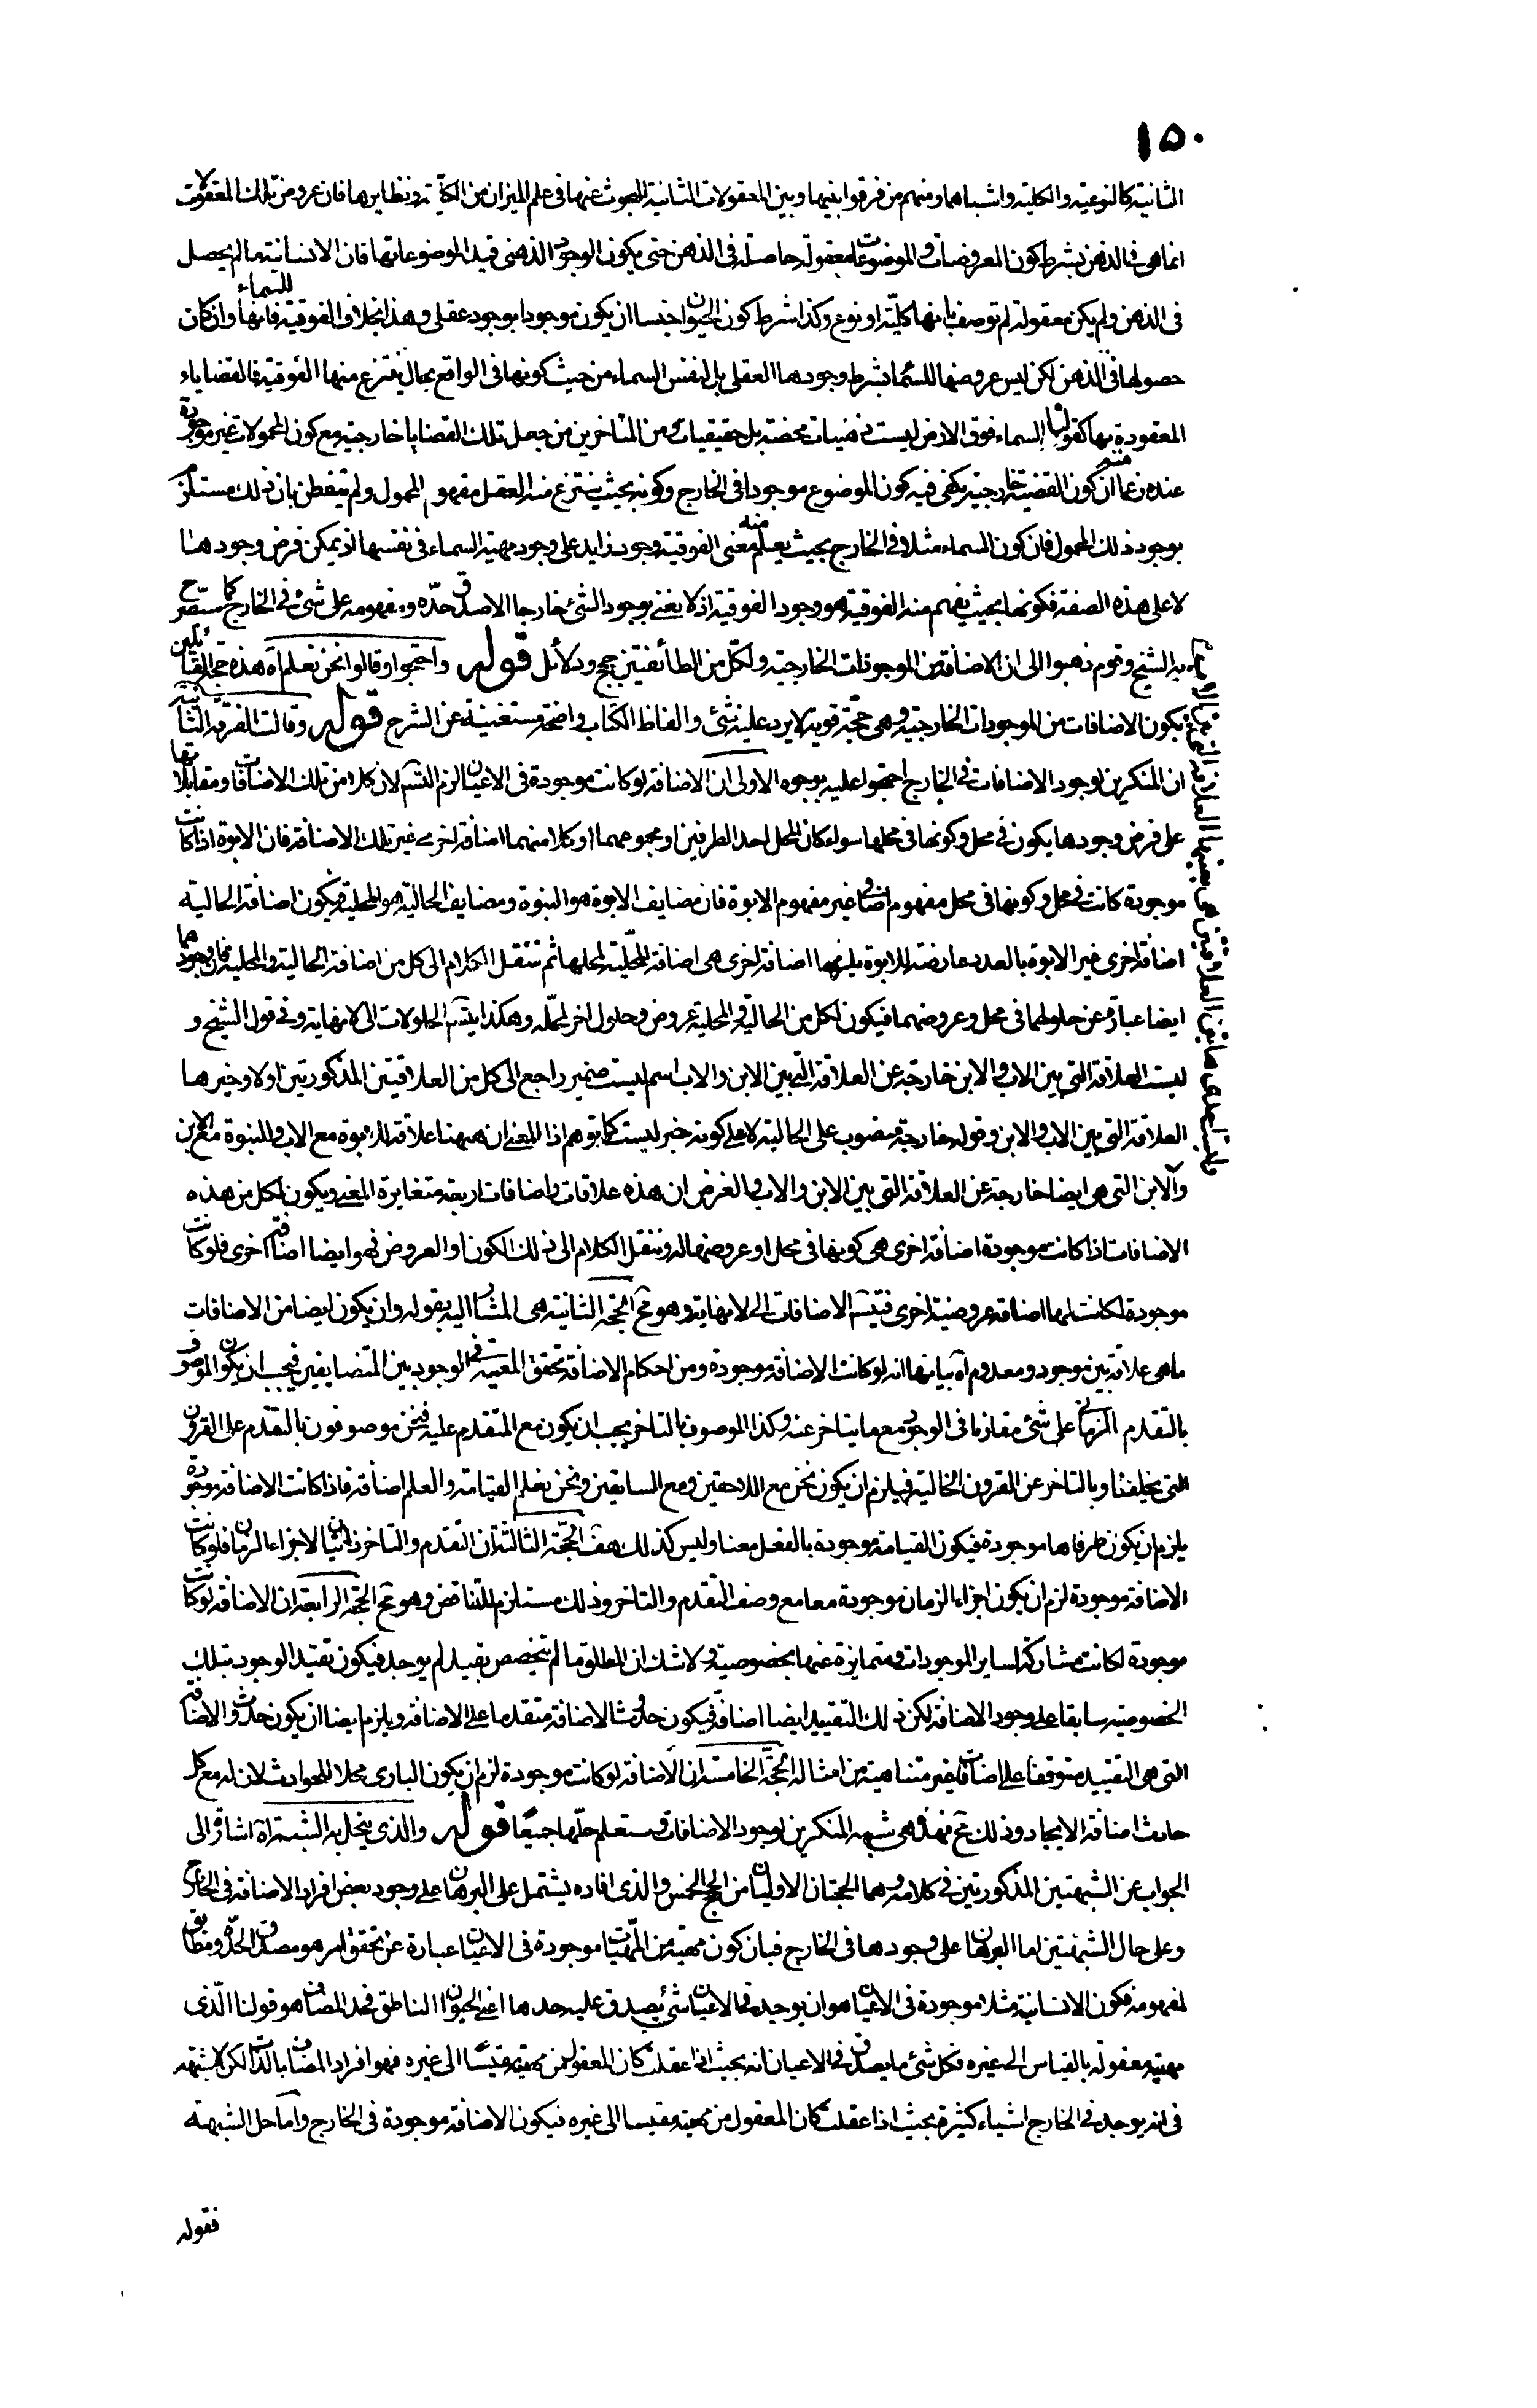 ١٥٠
الثانية كالنوعية والكلية واشباهما ومنهم من فرقوا بينها وبين المعقولات الثانية المبحوث عنها فى علم الميزان من الكلية ونظايرها فان عروض تلك المعقولات
انما هى فى الذهن بشرط كون المعروضات والموضوعات معقولة حاصلة فى الذهن حتى يكون الوجود الذهنى قيد الموضوعاتها فان الانسانية ما لم يحصل
فى الذهن ولم يكن معقولة لم توصف بانها كلية او نوع وكذا شرط كون الحيوان جنسا ان يكون موجودا بوجود عقلى وهذا بخلاف الفوقية للسماء فانها وان كان
حصولها فى الذهن لكن ليس عروضها للسماء بشرط وجودها العقلى بل لنفس السماء من حيث كونها فى الواقع بحال ينتزع منها الفوقية فالقضاياء
المعقودة بها كقولنا السماء فوق الارض ليست ذهنيات محضة بل حقيقيات ومن المتاخرين من جعل تلك القضايا خارجية مع كون المحمولات غير موجودة
عنده زعما منه ان كون القضية خارجية يكفى فيه كون الموضوع موجودا فى الخارج وكونه بحيث ينتزع منه العقل مفهوم المحمول ولم يتفطن بان ذلك مستلزم
بوجود ذلك المحمول فان كون السماء مثلا فى الخارج بحيث يعلم منه معنى الفوقية وجود زايد على وجود مهية السماء فى نفسها اذ يمكن فرض وجودها
لا على هذه الصفة فكونها بحيث يفهم منه الفوقية هو وجود الفوقية اذ لا يغنى بوجود الشئ خارجا الا صدق حده ومفهومه على شئ فى الخارج كما ستصرح
به الشيخ وقوم ذهبوا الى ان الاضافة من الموجودات الخارجية ولكل من الطائفتين حجج ودلائل قوله واحتجوا وقالوا نحن نعلم اه هذه حجة القائلين
بكون الاضافات من الموجودات الخارجية وهى حجة قوية لا يرد عليه شئ والفاظ الكتاب واضحة مستغنية عن الشرح قوله وقالت الفرقة الثانية
ان المنكرين لوجود الاضافات فى الخارج احتجوا عليه بوجوه الاولى ان الاضافة لو كانت موجودة فى الاعيان لزم التسم لان كلا من تلك الاضافات ومقابلاتها
على فرض وجودها يكون فى محل وكونها فى محلها سواء كان المحل احد الطرفين او مجموعهما او كلا منهما اضافة اخرى غير تلك الاضافة فان الابوة اذا كانت
موجودة كانت فى محل وكونها فى محل مفهوم اضافى غير مفهوم الابوة فان مضايف الابوة هو البنوة ومضايف الحالية هو المحلية فيكون اضافة الحالية
اضافة اخرى غير الابوة بالعدد عارضة للابوة يلزمها اضافة اخرى هى اضافة المحلية لمحلها ثم ننقل الكلام الى كل من اضافة الحالية والمحلية فان وجودهما
ايضا عبارة عن حلولهما فى محل وعروضهما فيكون لكل من الحالية والمحلية عروض وحلول اخر لمحله وهكذا يتسم الحلولات الى لا نهاية وفى قول الشيخ و
ليست العلاقة التى بين الاب والابن خارجة عن العلاقة التى بين الابن والاب اسم ليست ضمير راجع الى كل من العلاقتين المذكورتين اولا وخبرها
العلاقة التى بين الاب والابن وقوله خارجة منصوب على الحالية لا على كونه خبر ليست كما توهم اذ المعنى ان ههنا علاقة للابوة مع الاب وللبنوة مع الابن
والابن التى هى ايضا خارجة عن العلاقة التى بين الابن والاب والغرض ان هذه علاقات واضافات اربعة متغايرة المعنى ويكون لكل من هذه
الاضافات اذا كانت موجودة اضافة اخرى هى كونها فى محل او عروضها له وننقل الكلام الى ذلك الكون او العروض فهو ايضا اضافة اخرى فلو كانت
موجودة لكانت لها اضافة عروضية اخرى فتسم الاضافات الى لا نهاية وهو مح الحجة الثانية هى المشار اليه بقوله وان يكون ايضا من الاضافات
ما هى علاقة بين موجود ومعدوم اه بيانها انه لو كانت الاضافة موجودة ومن احكام الاضافة تحقق المعية فى الوجود بين المتضايفين فيجب ان يكون الموصوف
بالتقدم الزمانى على شئ مقارنا فى الوجود مع ما يتاخر عنه وكذا الموصوف بالتاخر يجب ان يكون مع المتقدم عليه فنحن موصوفون بالتقدم على القرون
التى يخلفنا وبالتاخر عن القرون الخالية فيلزم ان يكون نحن مع اللاحقين ومع السابقين ونحن نعلم القيامة والعلم اضافة فاذا كانت الاضافة موجودة
يلزم ان يكون طرفاها موجودة فيكون القيامة موجودة بالفعل معنا وليس كذلك هف الحجة الثالثة ان التقدم والتاخر ذاتيان لاجزاء الزمان فلو كانت
الاضافة موجودة لزم ان يكون اجزاء الزمان موجودة معا مع وصف التقدم والتاخر وذلك مستلزم للتناقض وهو مح الحجة الرابعة ان الاضافة لو كانت
موجودة لكانت مشاركة لساير الموجودات ومتمايزة عنها بخصوصية ولا شك ان المطلق ما لم يتخصص بقيد لم يوجد فيكون تقيد الوجود بتلك
الخصوصية سابقا على وجود الاضافة لكن ذلك التقييد ايضا اضافة فيكون حدوث الاضافة متقدما على الاضافة ويلزم ايضا ان يكون حدوث الاضافة
التى هى التقييد متوقفا على اضافات غير متناهية من امثاله الحجة الخامسة ان الاضافة لو كانت موجودة لزم ان يكون البارى محلا للحوادث لان له مع كل
حادث اضافة الايجاد وذلك مح فهذه هى شبه المنكرين لوجود الاضافات وستعلم حلها جميعا قوله والذى ينحل به الشبهة اه اشارة الى
الجواب عن الشبهتين المذكورتين فى كلامه وهما الحجتان الاوليان من الحجج الخمس والذى افاده يشتمل على البرهان على وجود بعض افراد الاضافة فى الخارج
وعلى حال الشبهتين اما البرهان على وجودها فى الخارج فبان كون مهية من المهيات موجودة فى الاعيان عبارة عن تحقق امر هو مصداق لحده ومطابق
لمفهومه فكون الانسانية مثلا موجودة فى الاعيان هو ان يوجد فى الاعيان شئ يصدق عليه حدها اعنى الحيوان الناطق فحد المضاف هو قولنا الذى
مهيته معقولة بالقياس الى غيره فكل شئ ما يصدق فى الاعيان انه بحيث اذا عقلت كان المعقول من مهيته مقيسا الى غيره فهو افراد المضاف بالذات لكن لا شبهة
فى انه يوجد فى الخارج اشياء كثيرة بحيث اذا عقلت كان المعقول من مهيته مقيسا الى غيره فيكون الاضافة موجودة فى الخارج واما حل الشبهة
فقوله